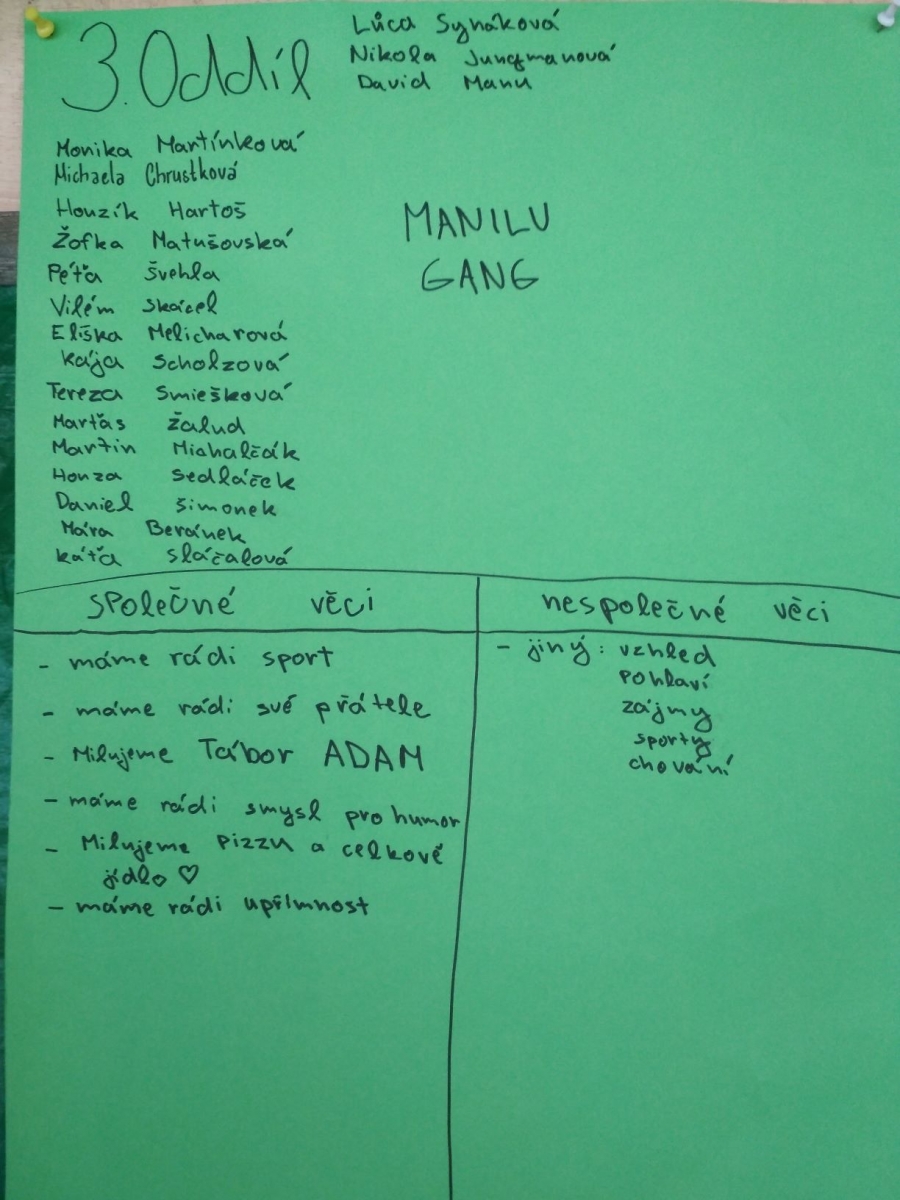 3. Oddíl
Lůca Synáková
Nikola Jungmanová
David Manu
Monika Martínková
Michaela Chrustková
Honzík Hartoš
Žofka Matušovská
Péťa Švehla
Vilém Skácel
Eliška Melicharová
Kája Scholzová
Tereza Smiešková
Marťas Žalud
Martin Michalčák
Honza Sedláček
Daniel Šimonek
Mára Beránek
Káťa Sláčalová
MANILU
GANG
společné věci
- máme rádi sport
- máme rádi své přátele
- Milujeme Tábor ADAM
- máme rádi smysl pro humor
- Milujeme Pizzu a celkově
jídlo ♡
- máme rádi upřímnost
nespolečné věci
- jiný: vzhled
pohlaví
zájmy
sporty
chování